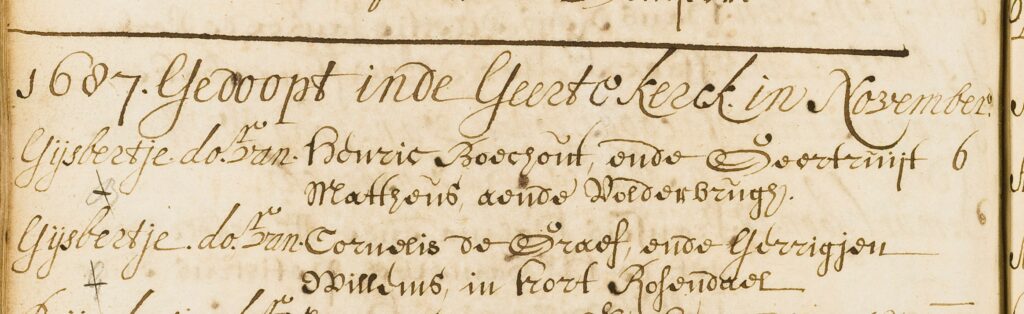 1687. Gedoopt inde Geerte kerck. in November.
Gijsbertje. do.r van. Henric Boechout, ende Geertruijt 6
Mattheus, aende Volderbrugh.
Gijsbertje. do.r van. Cornelis de Graef, ende Gerrigjen
Willems, in kort Rosendael